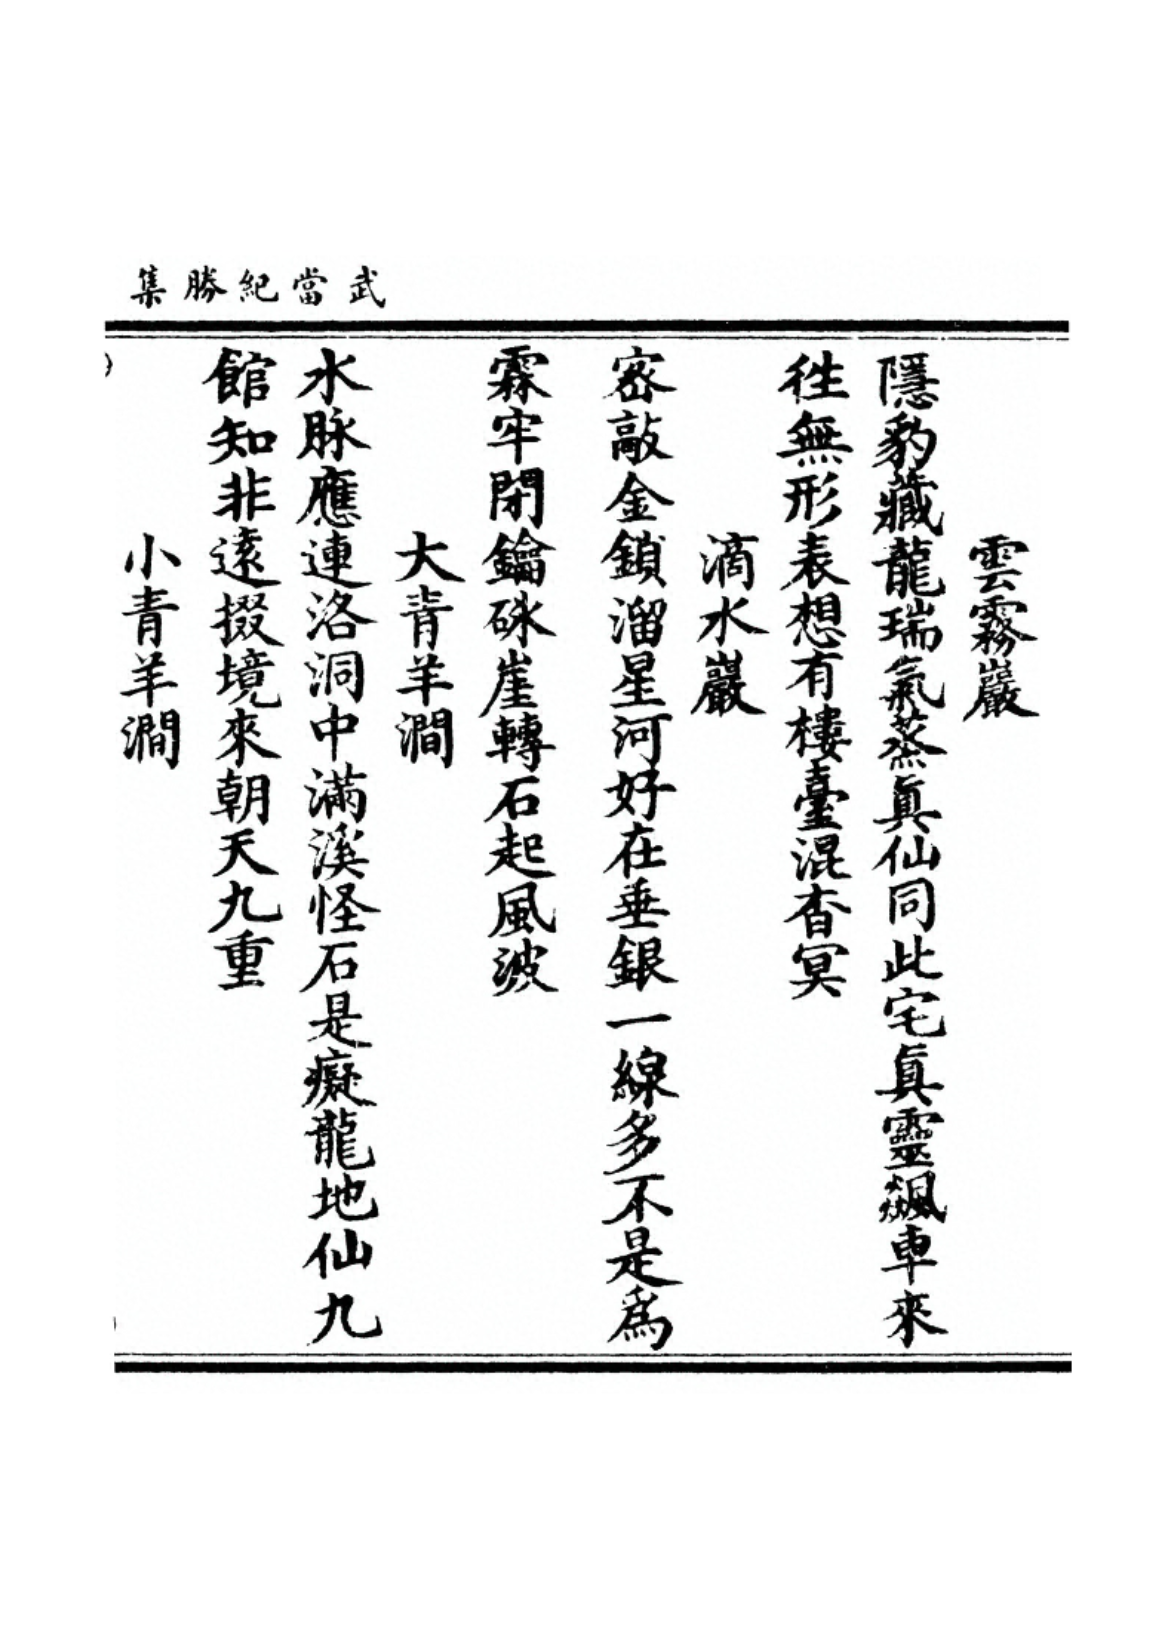 武當紀勝集
雲霧巖
隱豹藏龍瑞氣蒸真仙同此宅真靈飈車來
徃無形表想有樓臺混杳冥
滴水巖
密敲金鎖溜星河好在垂銀一線多不是為
霖牢閉鑰硃崖轉石起風波
大青羊澗
水脉應連洛洞中滿溪怪石是癡龍地仙九
館知非逺掇境來朝天九重
小青羊澗